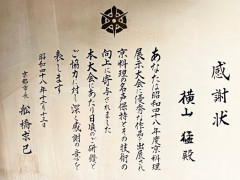 感謝状
横山 猛殿
あなたは昭和四十八年度京料理
展示大会に優秀な作品を出展され
京料理の名声保持とその技術の
向上に寄与されました
本大会にあたり日頃のご研鑽と
ご協力に対し深く感謝の意を
表します
昭和四十八年十二月十三日
京都市長 舩橋求己